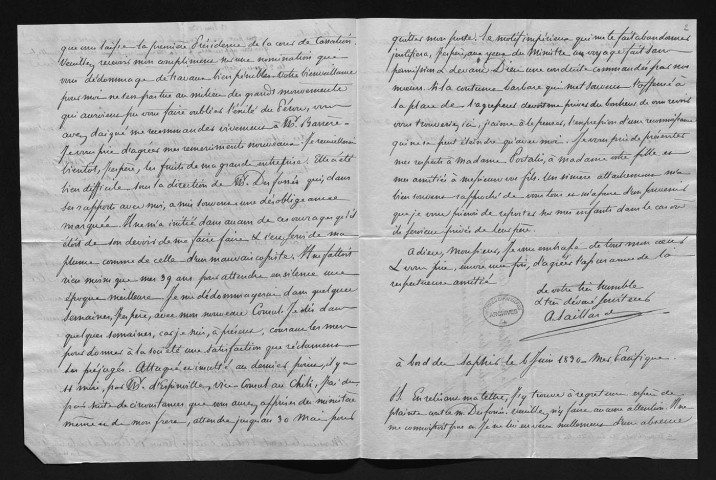 que vous laisse la première Présidence de la cour de Cassation.
Veuillez recevoir mon compliment sur une nomination qui
vous dédommage de travaux bien pénibles. Votre bienveillance
pour moi ne s'est pas tue au milieu des grands mouvements
qui auraient pu vous faire oublier l'exilé du Pérou, vous
avez daigné me recommander vivement à Mr. Barrère.
Je vous prie d'agréer mes remerciments nouveaux. Je recueillerai
bientôt, j'espère, les fruits de ma grande entreprise. Elle a été
bien difficile sous la direction de M. qui, dans
ses rapports avec moi, a mis souvent une désobligeance
marquée. Il ne m'a initié dans aucun de ces ouvrages qu'il
était de son devoir de me faire faire & s'est servi de ma
plume comme de celle d'un mauvais copiste. Il ne fallait
rien moins que mes 39 ans pour attendre en silence une
époque meilleure. Je me dédommagerai dans quelques
semaines, j'espère, avec mon nouveau Consul. Je dis dans
quelques semaines, car je suis, à présent, courant les mers
pour donner à la société une satisfaction que réclament
ses préjugés. Attaqué et insulté au dernier point, il y a
4 mois, par M. vice Consul au Chili, j'ai dû
par suite de circonstances que vous avez apprises du ministère
même et de mon frère, attendre jusqu'au 30 Mai pour
quitter mon poste. Le motif impérieux qui me le fait abandonner
justifiera, j'espère, aux yeux du Ministre un voyage fait sans
permission & devant Dieu une conduite commandée par nos
mœurs. Si la coutume barbare qui met souvent l'offensé à
la place de l'agresseur devait me priver du bonheur de vous revoir
vous trouverez ici, j'aime à le penser, l'expression d'une reconnaissance
qui ne peut s'éteindre qu'avec moi. Je vous prie de présenter
mes respects à madame Portalis, à madame votre fille et
mes amitiés à messieurs vos fils. Un sincère attachement m'a
bien souvent rapproché de vous tous et m'assure d'un souvenir
que je vous prierai de reporter sur mes enfants dans le cas où
ils seraient privés de leur père.
Adieu, Monsieur, je vous embrasse de tout mon cœur
& vous prie, encore une fois, d'agréer l'assurance de la
respectueuse amitié
de votre très humble
& très dévoué serviteur
A Saillard
ARCHIVES
à bord du Saphir le 6 Juin 1830 - Mer Pacifique.
PS. En relisant ma lettre, j'y trouve à regret une espèce de
plainte contre M. veuillez n'y faire aucune attention. Il ne
me connaissait pas et je ne lui en veux nullement d'un absence